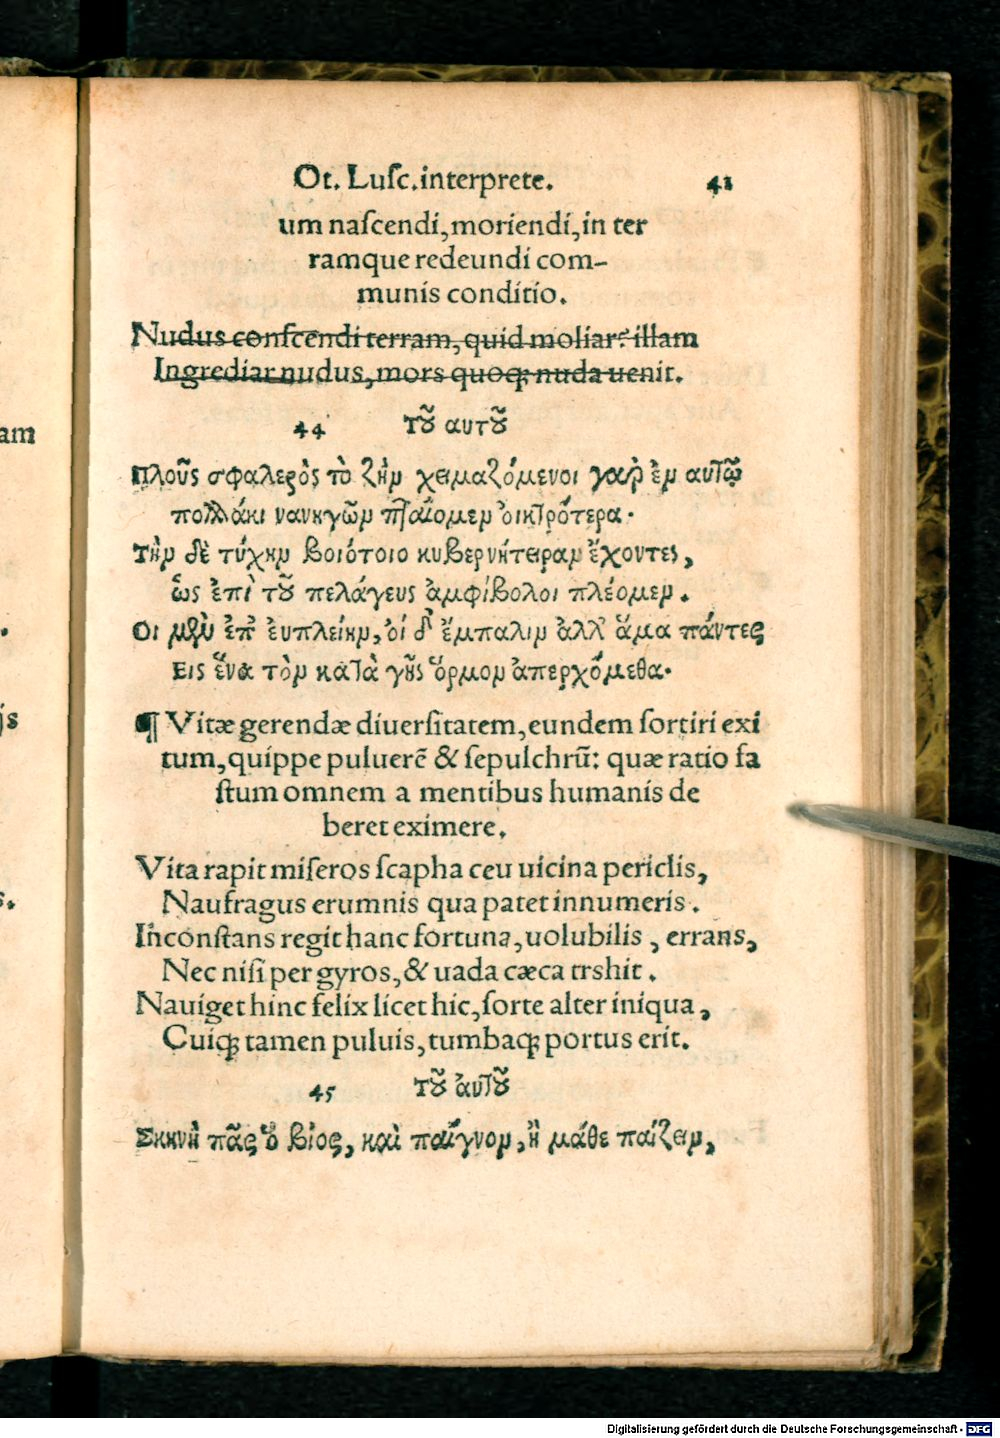 Ot. Luſc. interprete. 41
um naſcendi, moriendi, in ter
ramque redeundi com-
munis conditio.
Nudus conſcendi terram, quid moliar? illam
Ingrediar nudus, mors quoqꝫ nuda uenit.
44 Τοῦ αυτοῦ
Πλοῦς σφαλερὸς τὸ ζῆν χειμαζόμενοι γαὸ ἐν αυτῷ
πολλάκι ναυηγῶν πταίομεν ὀικτρότερα.
Τὴν δὲ τύχην βοιότοιο κυβερνήτειραν ἔχοντες,
ὡς ἐπὶ τοῦ πελάγευς ἀμφίβολοι πλέομεν.
Οι μὲν ἐπ' ἐυπλείην, ὁί δ' ἔμπαλιν ἀλλ' ἅμα πάντες
Εις ἕνα τὸν κατὰ γῆς ὅρμον ἀπερχόμεθα.
¶ Vitæ gerendæ diuerſitatem, eundem ſortiri exi
tum, quippe puluerẽ & ſepulchrũ: quæ ratio fa
ſtum omnem a mentibus humanis de
beret eximere.
Vita rapit miſeros ſcapha ceu uicina periclis,
Naufragus erumnis qua patet innumeris.
Inconſtans regit hanc fortuna, uolubilis, errans,
Nec niſi per gyros, & uada cæca trshit.
Nauiget hinc felix licet hic, ſorte alter iniqua,
Cuiqꝫ tamen puluis, tumbaqꝫ portus erit.
45 Τοῦ ἀυτοῦ
Σκηνὴ πᾶς ὁ βίος, καὶ παίγνον, ἢ μάθε παίζειν,
Digitalisierung gefördert durch die Deutsche Forschungsgemeinschaft - DFG